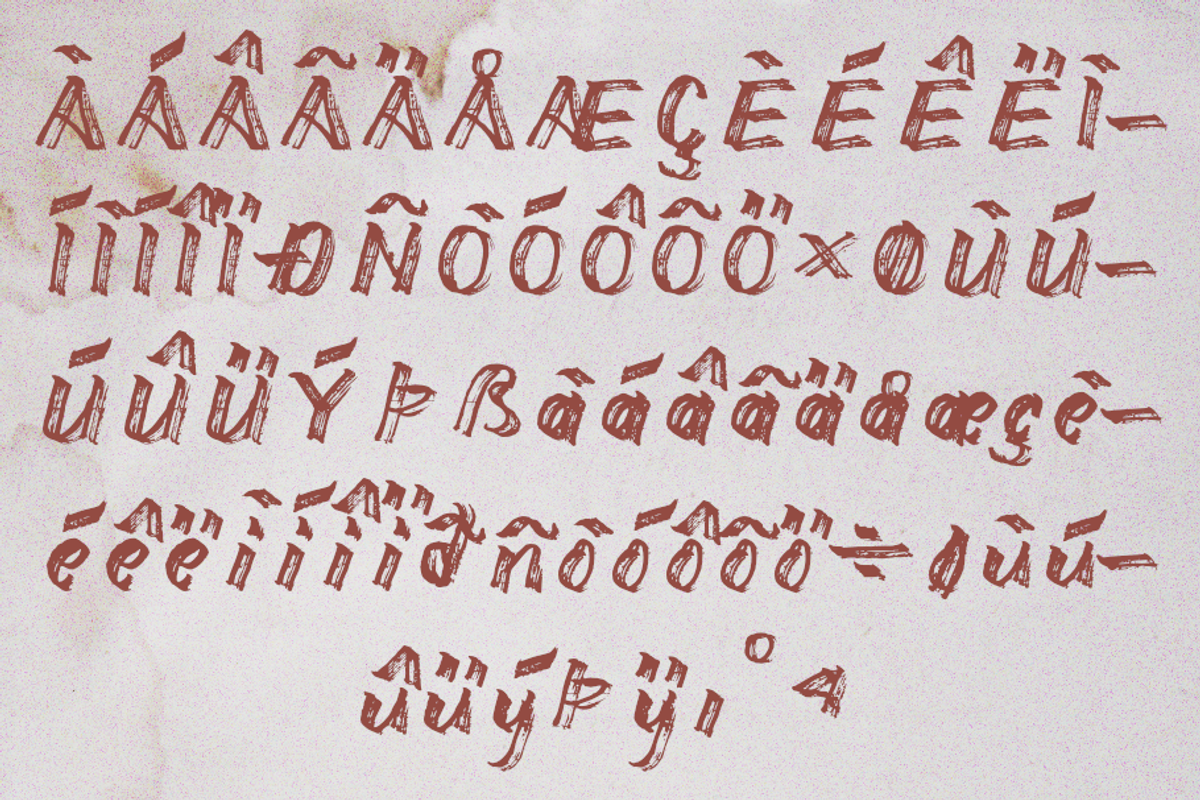 ÀÁÂÃÄÅÆÇÈÉÊËÌ-
ÍÌÍÎÏÐÑÒÓÔÕÖ×ØÙÚ-
ÚÛÜÝÞßàáâãäåæçè-
éêëìíîïðñòóôõö÷øùú-
ûüýþÿı°